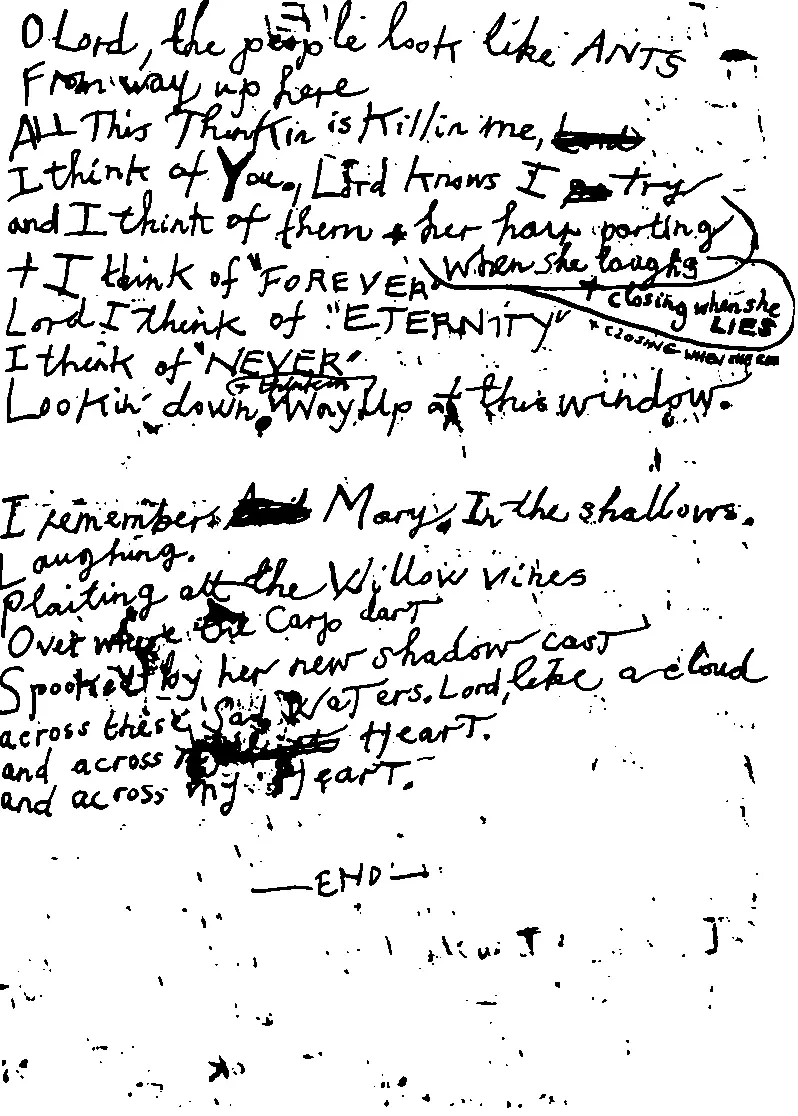 O Lord, the people look like ANTS
From way up here
ALL This Thinkin is Killin me,
I think of You, Lord knows I try
and I think of them + her hair parting
when she laughs
+ closing when she
LIES
+ CLOSING WHEN SHE
+ I think of "FOREVER"
Lord I think of "ETERNITY"
I think of "NEVER"
+ thinkin
Lookin' down, Way Up at this window.
I remembers Mary. In the shallows.
Laughing.
Plaiting all the Willow vines
Over where the Carp dart
Spooked by her new shadow cast
across these Sad WaTers. Lord, like a cloud
and across HearT.
and across my HearT.
—END—